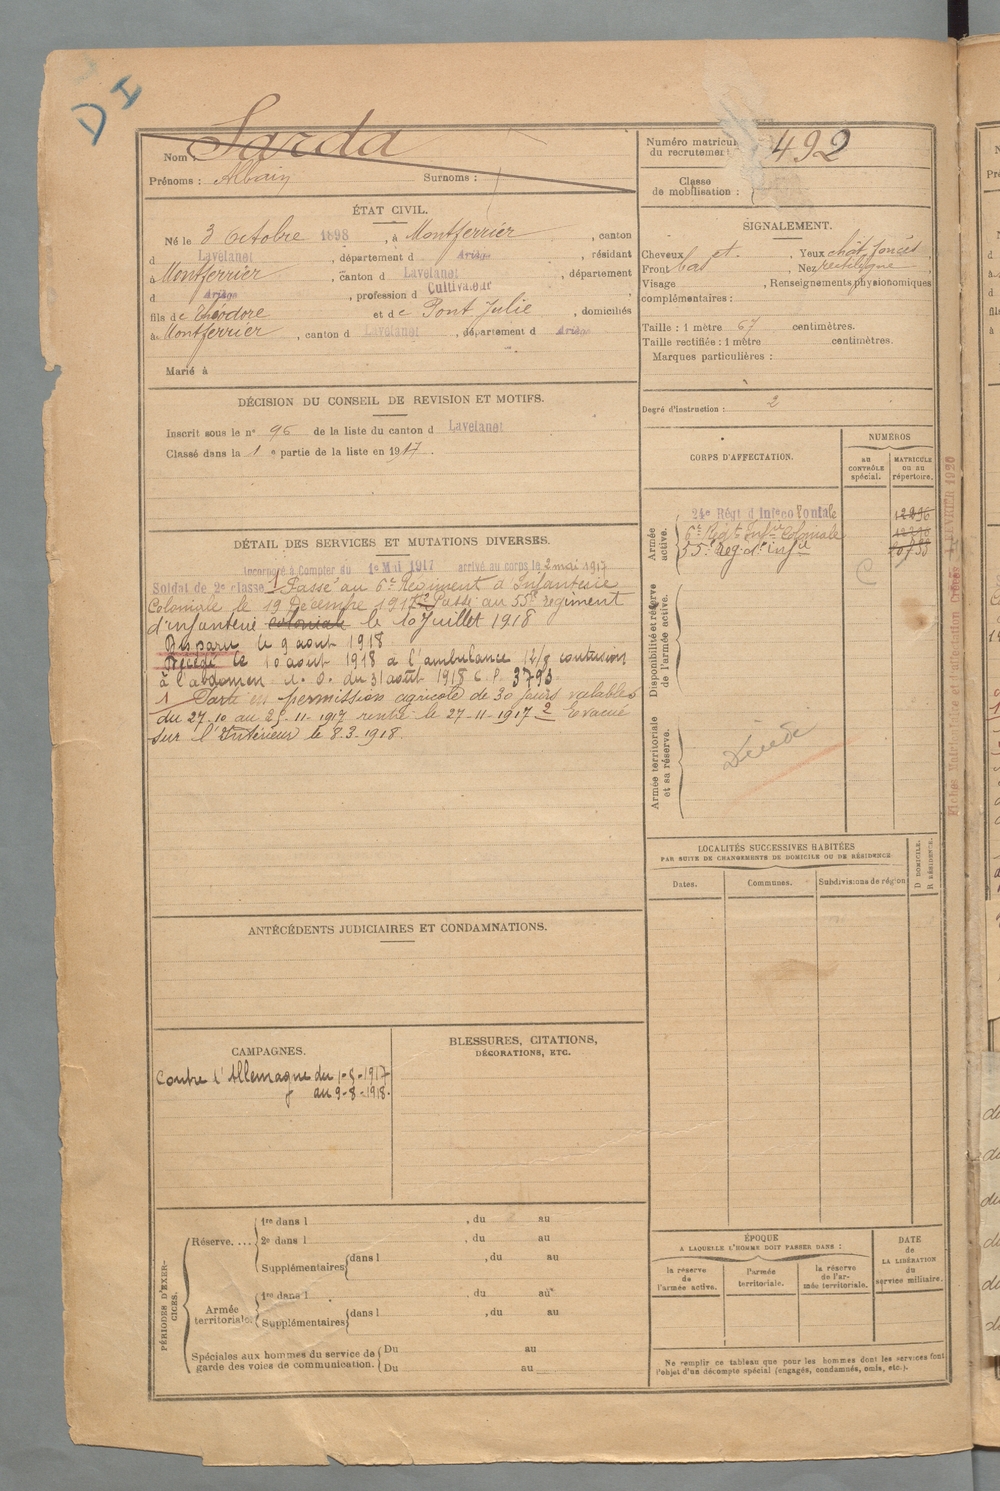 DI
Nom : Sarda
Prénoms : Alban Surnoms :
Numéro matricule du recrutement 492
Classe de mobilisation :
ÉTAT CIVIL.
Né le 3 Octobre 1898, à Montferrier, canton
d Lavelanet, département d Ariège, résidant
à Montferrier, canton d Lavelanet, département
d Ariège, profession d Cultivateur,
fils de Théodore et de Pont Julie, domiciliés
à Montferrier, canton d Lavelanet, département d Ariège
Marié à
SIGNALEMENT.
Cheveux ct. Yeux chât. foncés
Front bas, Nez rectiligne
Visage , Renseignements physionomiques
complémentaires :
Taille : 1 mètre 67 centimètres.
Taille rectifiée : 1 mètre centimètres.
Marques particulières :
Degré d'instruction : 2
DÉCISION DU CONSEIL DE REVISION ET MOTIFS.
Inscrit sous le nº 96 de la liste du canton d Lavelanet
Classé dans la 1 e partie de la liste en 1917.
CORPS D'AFFECTATION.
NUMÉROS
AU CONTRÔLE spécial.
MATRICULE OU AU répertoire.
Armée active.
24e Régt d'Infco loniale 12296
6e Régt Infie Coloniale 12296
55e Rég. d'Infie
C
Disponibilité et réserve de l'armée active.
Armée territoriale et sa réserve.
Décédé
DÉTAIL DES SERVICES ET MUTATIONS DIVERSES.
Incorporé à Compter du 1er Mai 1917 arrivé au corps le 2 mai 1917
Soldat de 2e classe 1 Passé au 6e Régiment d'Infanterie
Coloniale le 19 Décembre 1917 2 Passé au 55e régiment
d'infanterie coloniale le 10 Juillet 1918
Disparu le 9 août 1918
Décédé le 10 août 1918 à l'ambulance 12/8 contusion
à l'abdomen d. O. du 31 août 1918 C. P. 3793
1 Parti en permission agricole de 30 jours valables
du 27-10 au 25-11-1917 rentré le 27-11-1917 2 Evacué
sur l'Intérieur le 8-3-1918.
Fiches Matricules et d'affectation Créées FÉVRIER 1920
LOCALITÉS SUCCESSIVES HABITÉES
PAR SUITE DE CHANGEMENTS DE DOMICILE OU DE RÉSIDENCE
Dates. Communes. Subdivisions de région
D DOMICILE. R RÉSIDENCE.
ANTÉCÉDENTS JUDICIAIRES ET CONDAMNATIONS.
CAMPAGNES.
Contre l'Allemagne du 1-5-1917
au 9-8-1918.
BLESSURES, CITATIONS,
DÉCORATIONS, ETC.
PÉRIODES D'EXERCICES.
Réserve....
1re dans l , du au
2e dans l , du au
Supplémentaires dans l , du au
Armée territoriale
1re dans l , du au
Supplémentaires dans l , du au
Spéciales aux hommes du service de garde des voies de communication.
Du au
Du au
ÉPOQUE
A LAQUELLE L'HOMME DOIT PASSER DANS :
la réserve de l'armée active.
l'armée territoriale.
la réserve de l'armée territoriale.
DATE de LA LIBÉRATION du service militaire.
Ne remplir ce tableau que pour les hommes dont les services font
l'objet d'un décompte spécial (engagés, condamnés, omis, etc.).